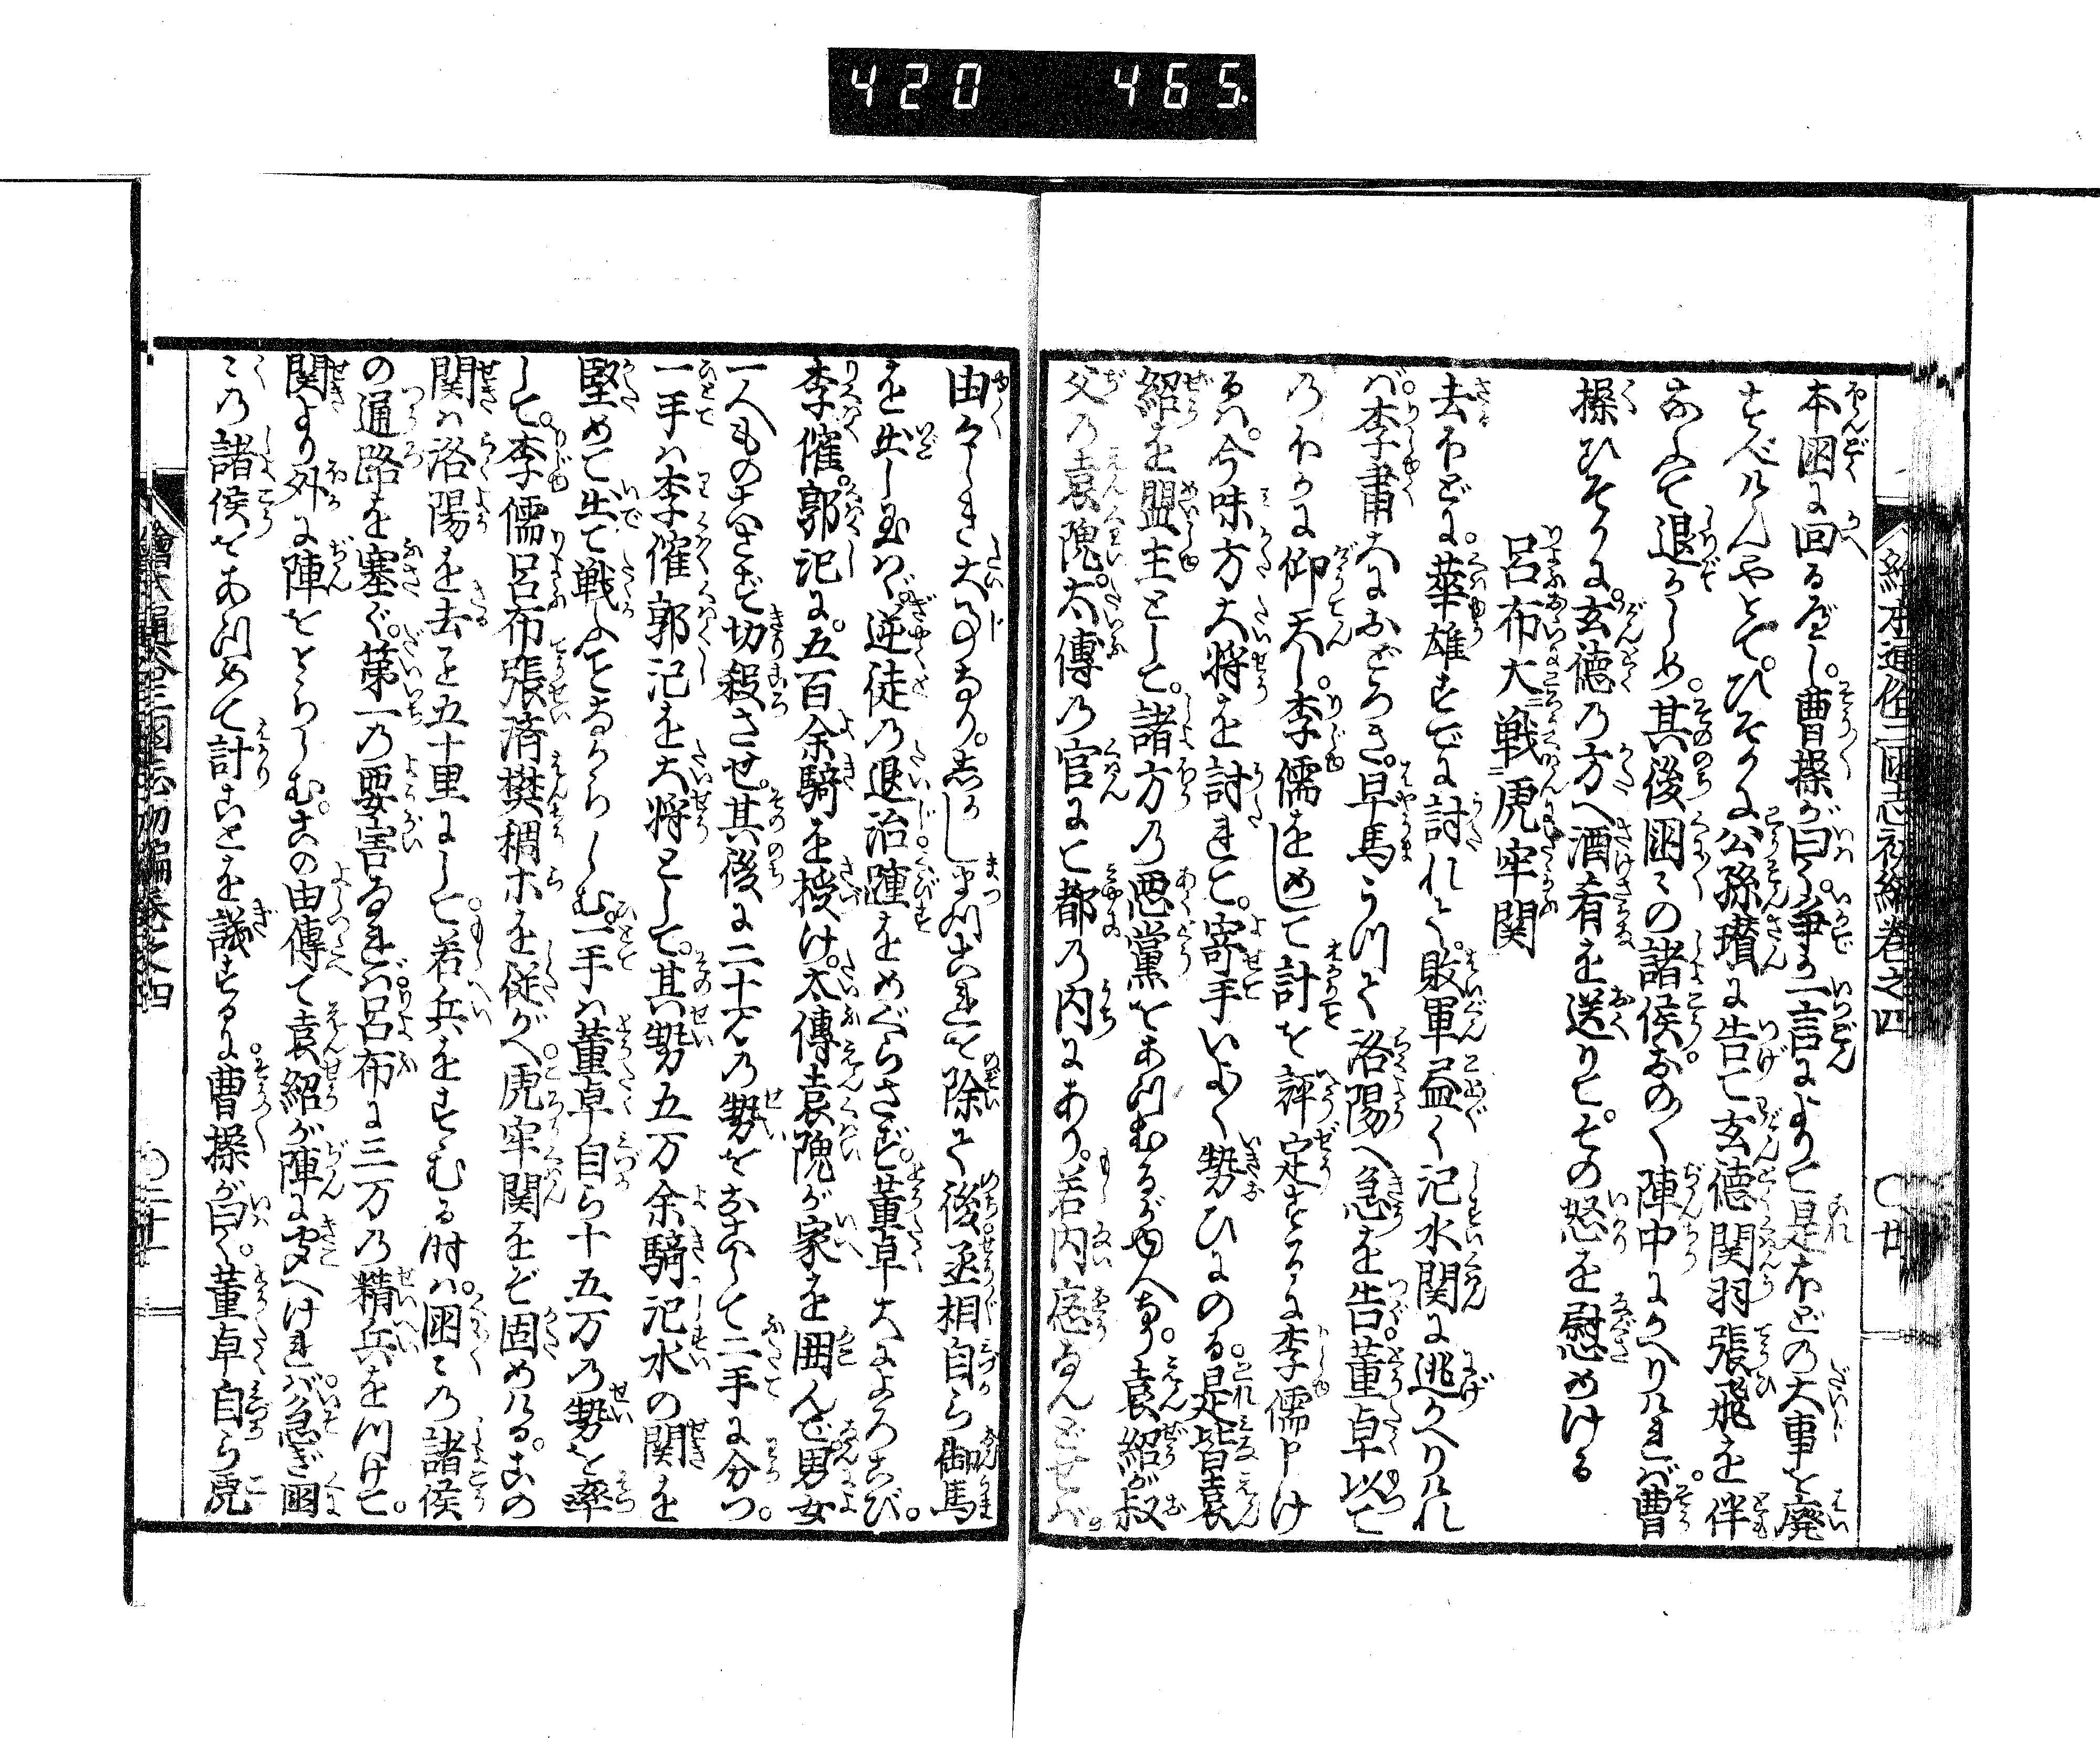 420 465
繪本通俗三國志初編巻之四 ○廿
本国に回るべし。曹操が曰く争か一言によりて是ほどの大事を廃
すべけんやとて。ひそかに公孫瓚に告て玄徳関羽張飛を伴
なふて退かしめ。其後国〻の諸侯おの〱陣中にかへりければ。曹
操ひそかに。玄徳の方へ酒肴を送りて。その怒を慰めける
呂布大ニ戦ニ虎牢関
去ほどに。華雄すでに討れて。敗軍益〱汜水関に逃かへりけれ
ば。李粛大におどろき。早馬うつて洛陽へ急を告。董卓以て
のほかに仰天し。李儒をして計を評定するに李儒申け
るハ。今味方大将を討れて。寄手いよ〱勢ひにのる。是皆袁
紹を盟主として。諸方の悪黨をあつむるがゆへなり。袁紹が叔
父の袁隗。太傅の官にて都の内にあり。若内応なんどせば。
由〻しき大事なり。しかじまづこれを除て後丞相自ら御馬
を出し玉はゞ。逆徒の退治踵をめぐらさじ。董卓大によろこび。
李傕。郭汜に。五百余騎を授け。太傅袁隗が家を囲んで男女
一人ものこさず切殺させ。其後に二十万の勢をおこして二手に分つ。
一手ハ李傕郭汜を大将として。其勢五万余騎汜水の関を
堅めて出て戦ふことなからしむ。一手ハ董卓自ら十五万の勢を率
して。李儒呂布張済樊稠ホを従がへ。虎牢関をぞ固めける。この
関ハ洛陽を去こと五十里にして。若兵をすすむる时ハ。国〻の諸侯
の通路を塞ぐ。第一の要害なれば。呂布に三万の精兵をつけて。
関より外に陣をとらしむ。この由傳て袁紹が陣に聞へければ。急ぎ国
〻の諸侯をあつめて計ことを議するに。曹操が曰く。董卓自ら虎
繪本通俗三國志初編巻之四 ○二十一